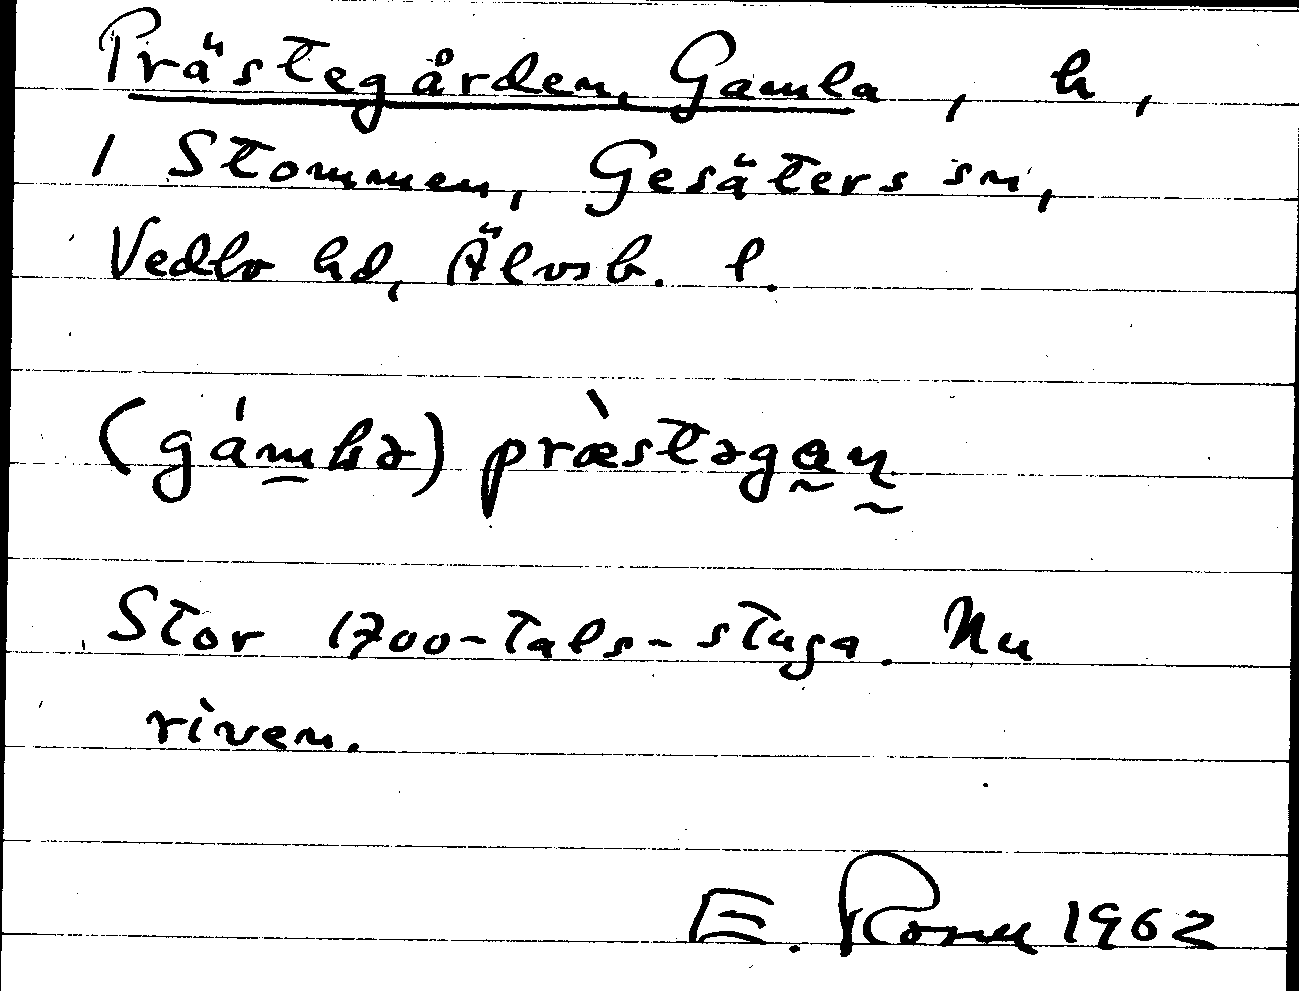 Prästegården, Gamla, h,
1 Stommen, Gesäters sn,
Vedbo hd, Älvsb. l.
præstəgaɳ
Stor 1700-tals-stuga. Nu
riven.
E. 1962